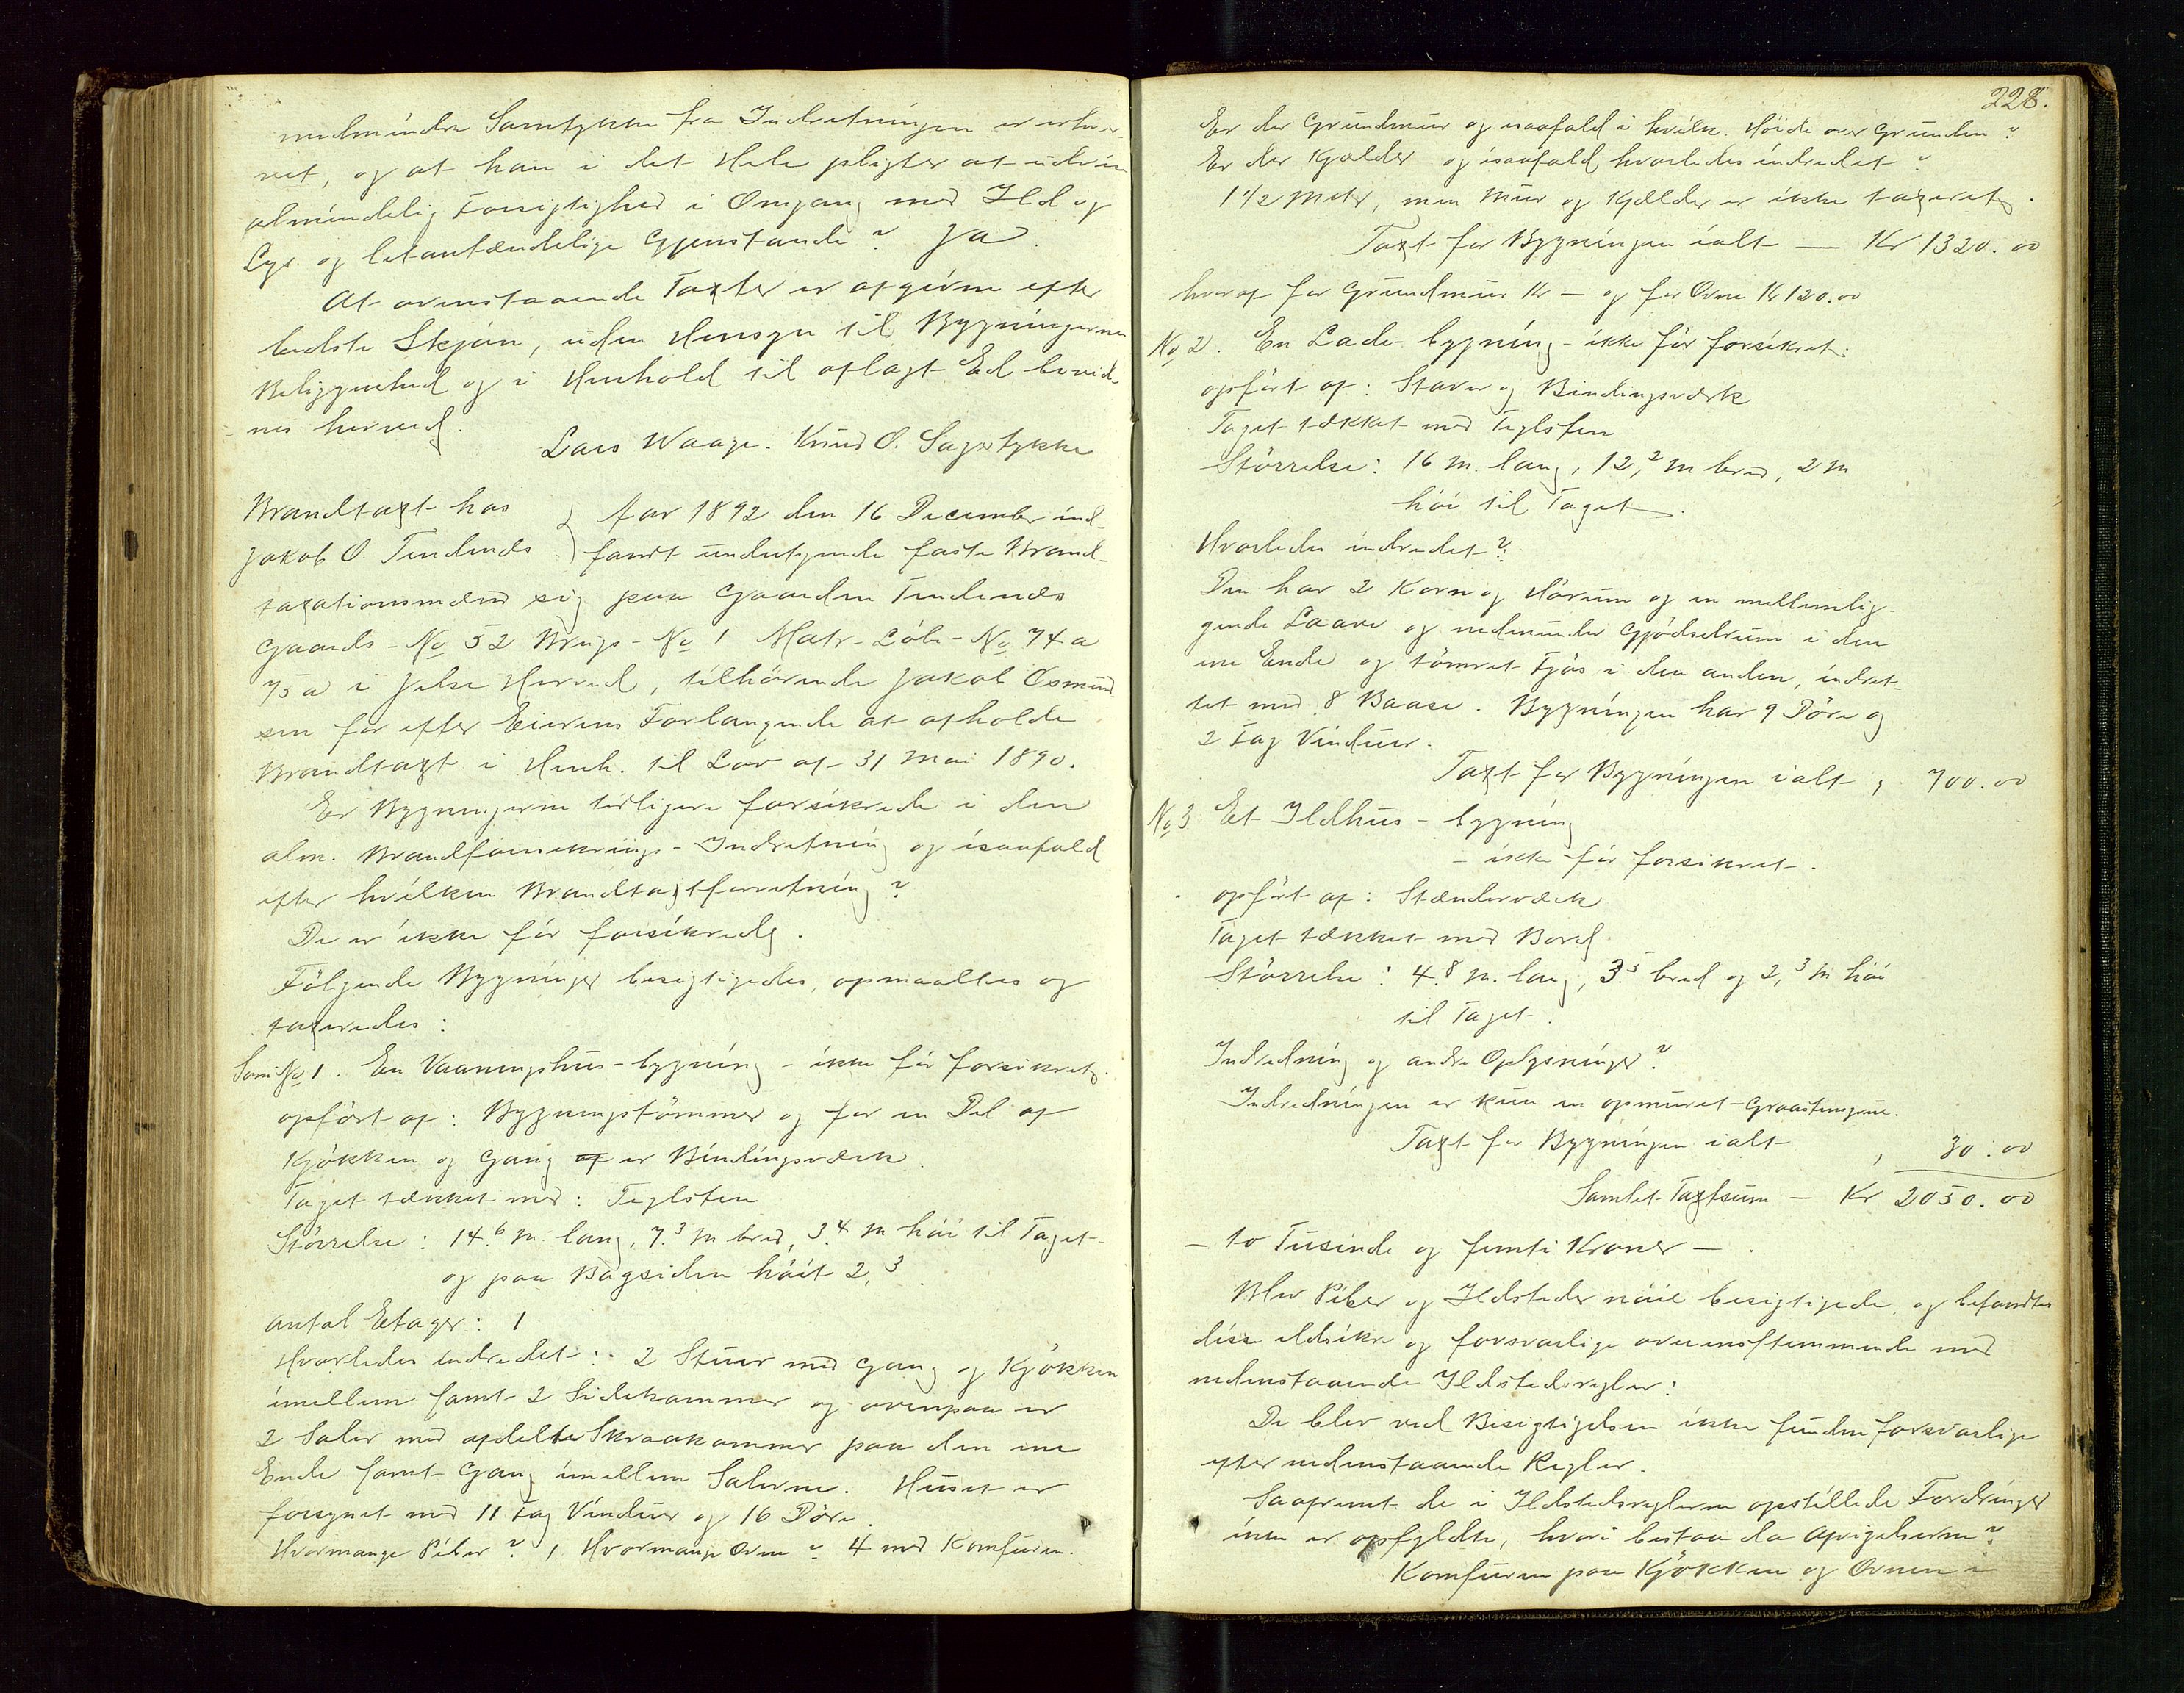 medmindre Samtykke fra Indretningen er erhver-
vet, og at han i det Hele pligter at udvise
almindelig Forsigtighed i Omgang med Ild og
Lys og letantændelige Gjenstande? Ja.
At ovenstaaende Taxter er afgivne efter
bedste Skjøn, uden Hensyn til Bygningernes
Beliggenhed og i Henhold til aflagt Ed bevid-
nes herved.
Lars Waage. Knud O. Sagstykke
Brandtaxt hos
Jakob O. Tendenes
Aar 1892 den 16 December ind-
fandt undertegnede faste Brand-
taxationsmænd sig paa Gaarden Tendenes
Gaards-No 52 Brugs-No 1 Matr-Löbe-No 74a
75a i Jelse Herred, tilhörende Jakob Osmund-
sen for efter Eierens Forlangende at afholde
Brandtaxt i Henh. til Lov af 31 Mai 1890.
Er Bygningerne tidligere forsikrede i den
alm. Brandforsikrings-Indretning og isaafald
efter hvilken Brandtaxtforretning?
De er ikke för forsikrede.
Fölgende Bygninger besigtigedes, opmaaltes og
taxeredes:
Som No 1. En Vaaningshus-bygning - ikke för forsikret.
opfört af: Bygningstömmer og for en Del af
Kjökken og Gang af er Bindingsværk.
Taget tækket med: Teglsten
Störrelse: 14.6 m. lang, 7.3 m bred, 3.4 m höi til Taget
og paa Bagsiden höit 2,3.
antal Etager: 1
Hvorledes indredet: 2 Stuer med Gang og Kjökken
imellem samt 2 Sidekammer og ovenpaa er
2 Saler med afdelte Skraakammer paa den ene
Ende samt Gang imellem Salerne. Huset er
forsynet med 11 Fag Vinduer og 16 Döre.
Hvormange Piber? 1 Hvormange Ovne? 4 med Komfuren.
228.
Er der Grundmur og isaafald i hvilk. Höide over Grunden?
Er der Kjælder og isaafald hvorledes indredet?
1 1/2 Meter, men Mur og Kjelder er ikke taxeret.
Taxt for Bygningen ialt — Kr 1320.00
hvoraf for Grundmur Kr — og for Ovne Kr 120.00
No 2. En Lade-bygning - ikke för forsikret:
opfört af: Staver og Bindingsværk
Taget tækket med Teglsten
Störrelse: 16 m. lang, 12,2 m bred, 2 m
höi til Taget.
Hvorledes indredet?
Den har 2 Korn og Hörum og en mellemlig-
gende Laave og nedenunder Gjödselrum i den
ene Ende og tömret Fjös i den anden, indret-
tet med 8 Baase. Bygningen har 9 Döre og
2 Fag Vinduer.
Taxt for Bygningen ialt , 700.00
No 3 Et Ildhus-bygning
- ikke för forsikret.
opfört af: Stænderværk
Taget tækket med Bord
Störrelse: 4.8 m. lang, 3.5 bred og 2,3 m höi
til Taget.
Indredning og andre Oplysninger?
Indredningen er kun en opmuret Graastensgrue.
Taxt for Bygningen ialt , 30.00
Samlet Taxtsum — Kr 2050.00
— to Tusinde og femti Kroner —.
Blev Piber og Ildsteder nöie besigtigede, og befandtes
disse ildsikre og forsvarlige overensstemmende med
nedenstaaende Ildstedsregler:
De blev ved Besigtigelsen ikke fundne forsvarlige
efter nedenstaaende Regler.
Saafremt de i Ildstedsreglerne opstillede Fordringer
ikke er opfyldte, hvori bestaa da Afvigelserne?
Komfuren paa Kjökken og Ovnen i